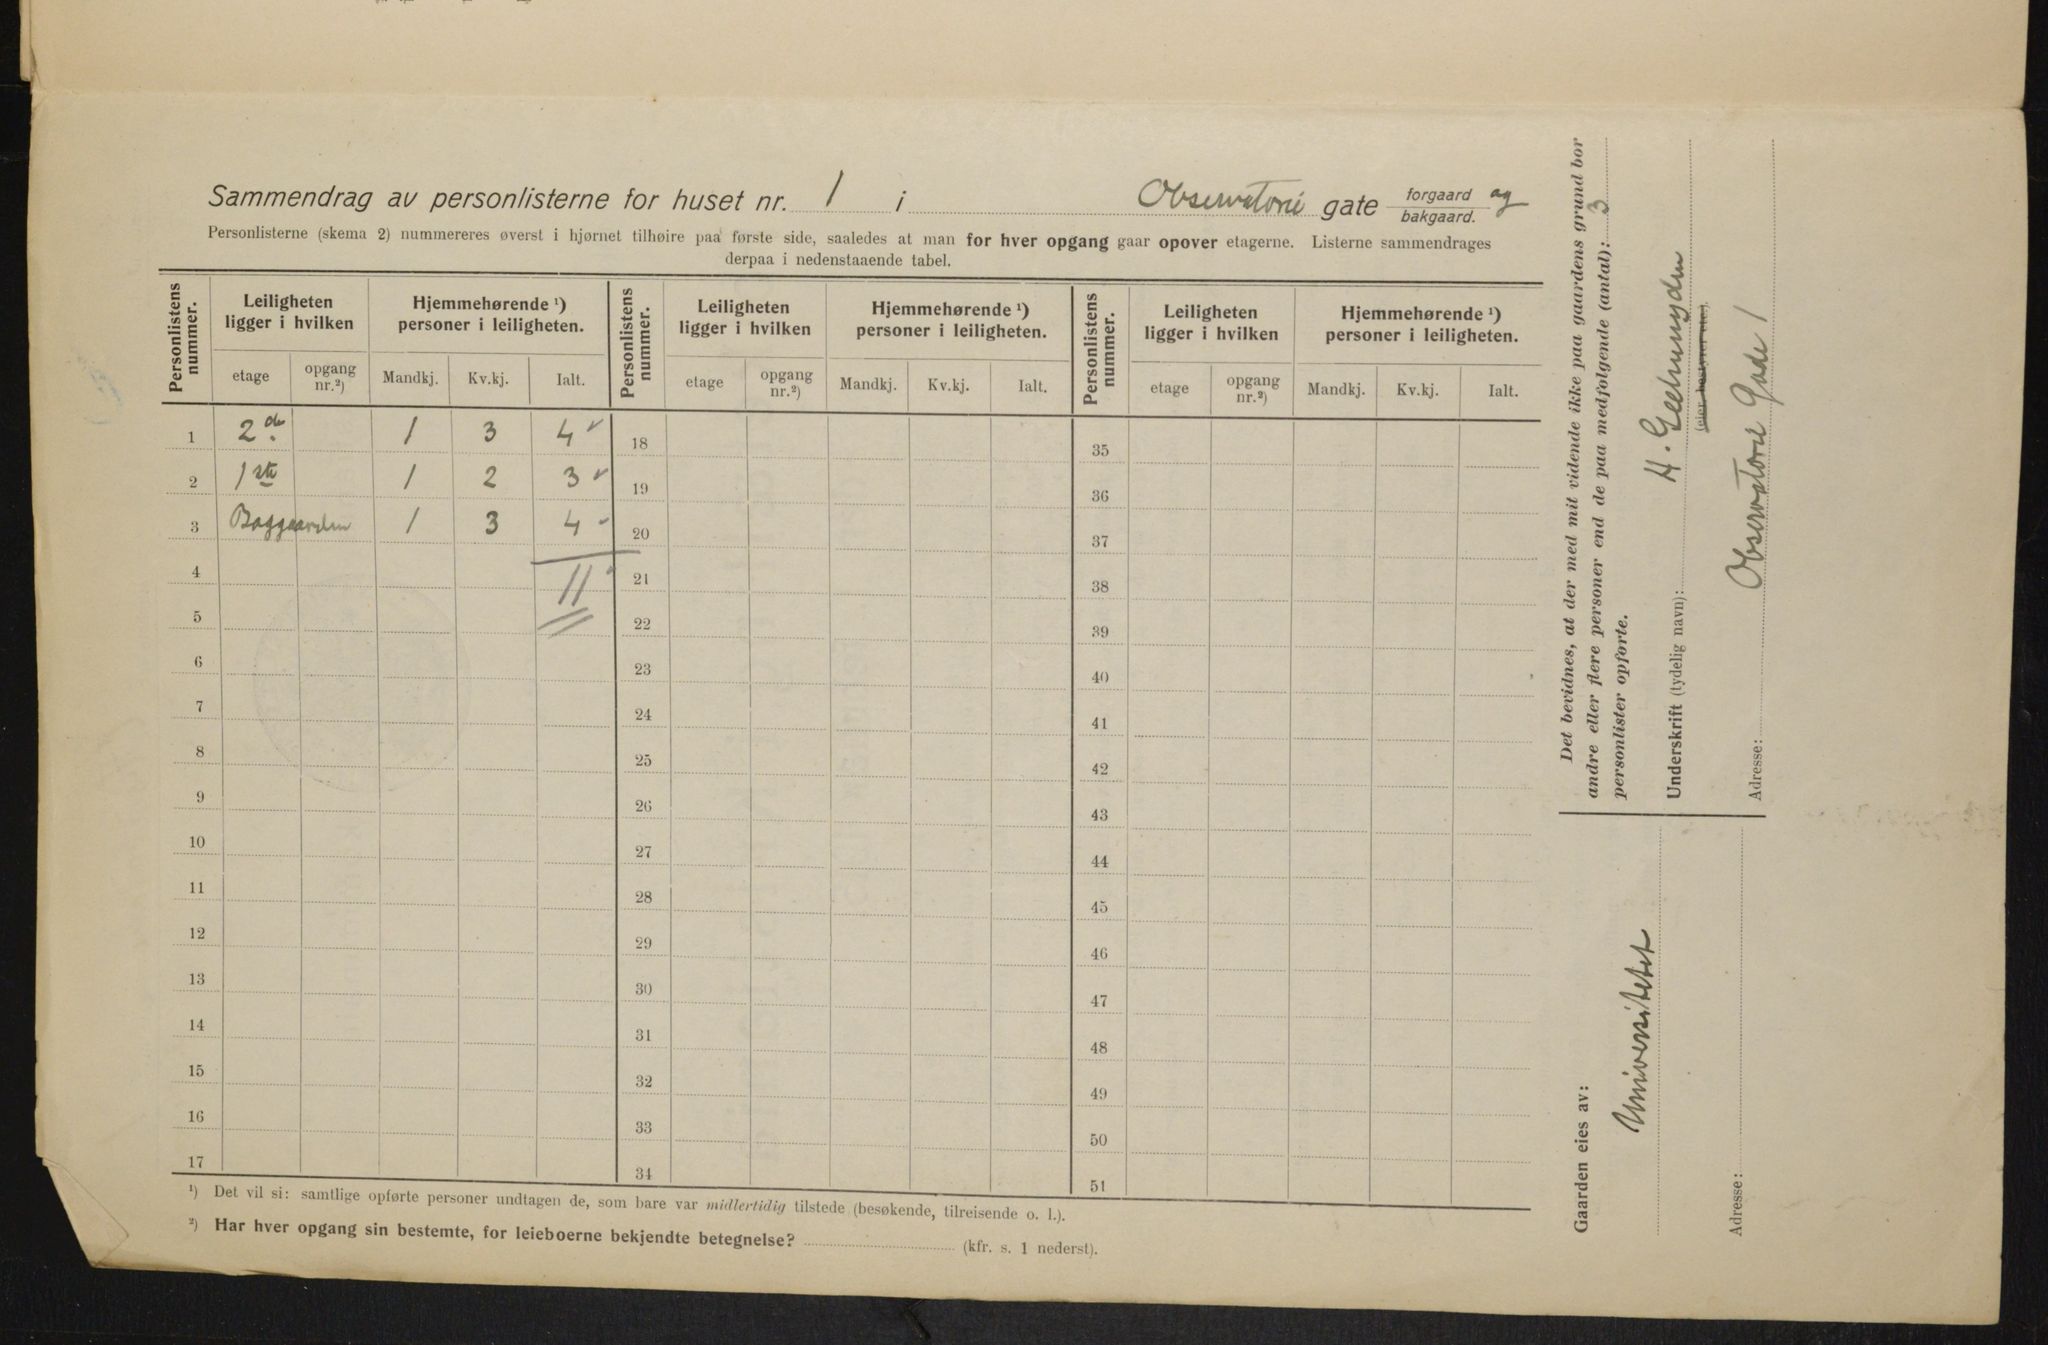 Sammendrag av personlisterne for huset nr. 1 i Observatorie gate forgaard og bakgaard.
Personlisterne (skema 2) nummereres øverst i hjørnet tilhøire paa første side, saaledes at man for hver opgang gaar opover etagerne. Listerne sammendrages
derpaa i nedenstaaende tabel.
Personlistens nummer. Leiligheten ligger i hvilken Hjemmehørende ¹) personer i leiligheten. Personlistens nummer. Leiligheten ligger i hvilken Hjemmehørende ¹) personer i leiligheten. Personlistens nummer. Leiligheten ligger i hvilken Hjemmehørende ¹) personer i leiligheten.
etage opgang nr.²) Mandkj. Kv.kj. Ialt. etage opgang nr.²) Mandkj. Kv.kj. Ialt. etage opgang nr.²) Mandkj. Kv.kj. Ialt.
1 2de 1 3 4 18 35
2 1ste 1 2 3 19 36
3 Baggaarden 1 3 4 20 37
4 11 21 38
5 22 39
6 23 40
7 24 41
8 25 42
9 26 43
10 27 44
11 28 45
12 29 46
13 30 47
14 31 48
15 32 49
16 33 50
17 34 51
¹) Det vil si: samtlige opførte personer undtagen de, som bare var midlertidig tilstede (besøkende, tilreisende o. l.).
²) Har hver opgang sin bestemte, for leieboerne bekjendte betegnelse? (kfr. s. 1 nederst).
Det bevidnes, at der med mit vidende ikke paa gaardens grund bor
andre eller flere personer end de paa medfølgende (antal): 3
personlister opførte.
Underskrift (tydelig navn): H. Geelmuyden
(eier, bestyrer etc.)
Adresse: Observatorie Gade 1
Gaarden eies av:
Universitetet
Adresse: